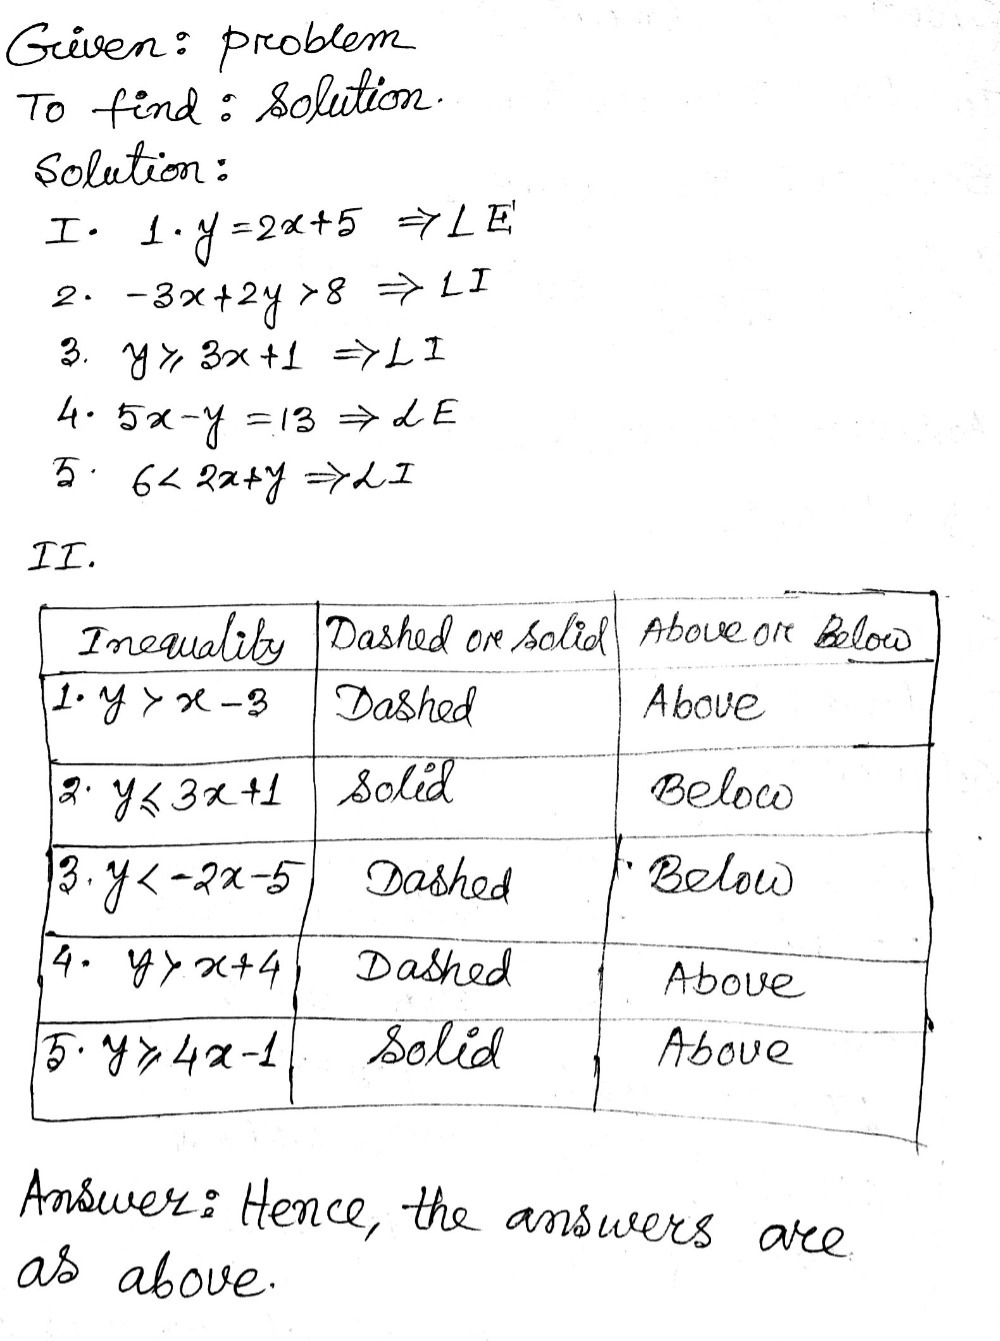 Given: problem
To find: Solution.
Solution:
I. 1. y = 2x+5 ⇒ LE
2. -3x+2y > 8 ⇒ LI
3. y ≥ 3x+1 ⇒ LI
4. 5x-y = 13 ⇒ LE
5. 6 < 2x+y ⇒ LI
II.
Inequality Dashed or Solid Above or Below
1. y > x-3 Dashed Above
2. y ≤ 3x+1 Solid Below
3. y < -2x-5 Dashed Below
4. y > x+4 Dashed Above
5. y ≥ 4x-1 Solid Above
Answer: Hence, the answers are
as above.